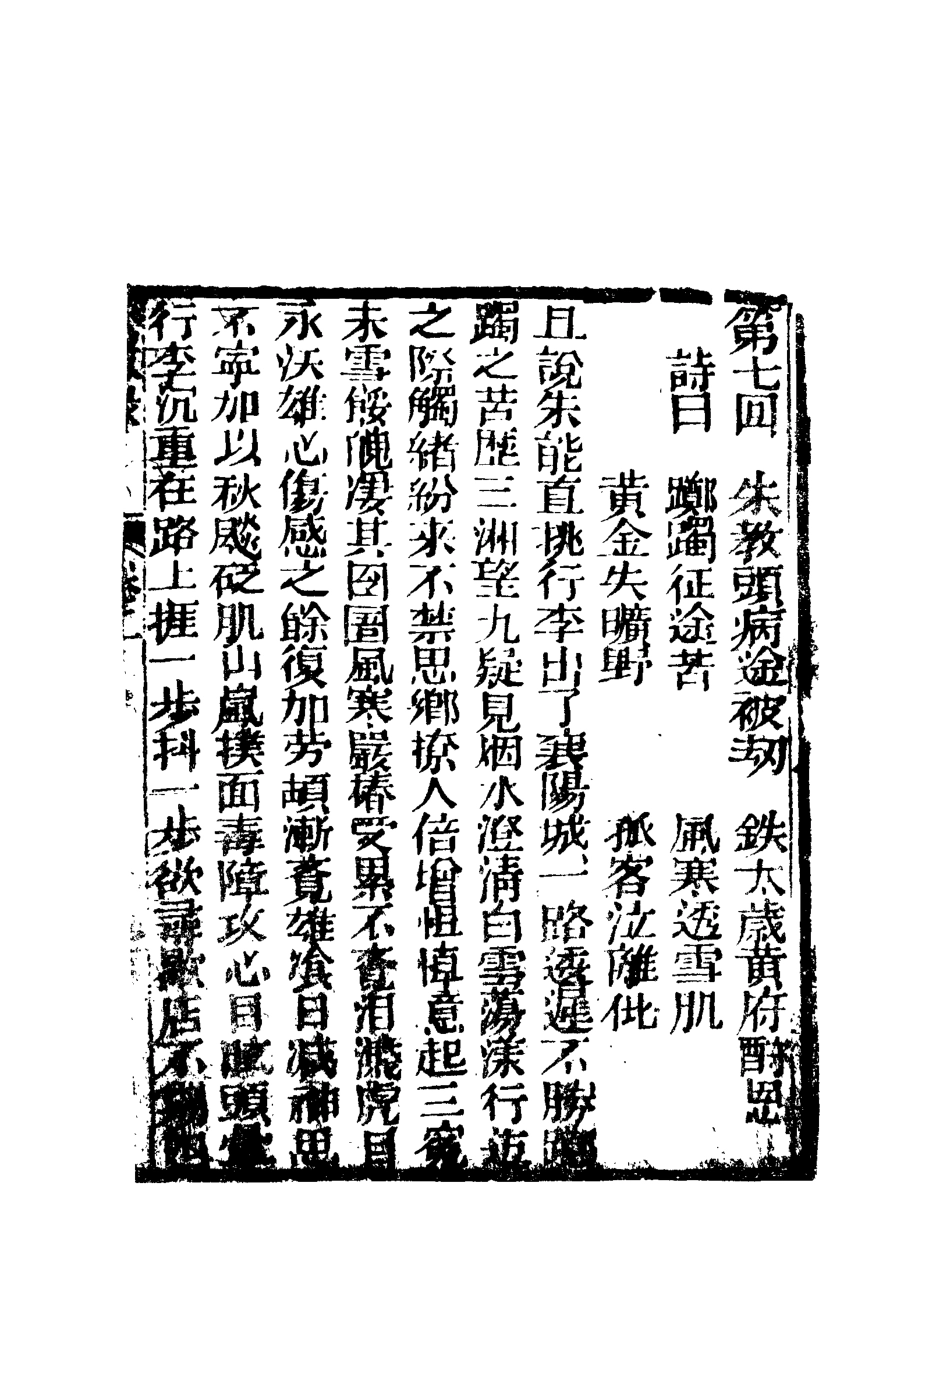 第七回　朱教頭病途被刧　鉄太歲黃府酧恩
詩曰　躑躅征途苦　風寒透雪肌
黃金失曠野　孤客泣離仳
且說朱能直挑行李出了襄陽城一路逶遲不勝躑
躅之苦歴三洲望九疑見烟水澄清白雲蕩漾行遊
之際觸緒紛來不禁思鄉撩人倍增怛悼意起三寃
未雪餒愧凄其囹圄風寒嚴椿受累不覺泪濺虎目
永沃雄心傷感之餘復加劳頓漸覔雄飡日减神思
不寕加以秋颷砭肌山嵐撲面毒障攻心目眩頭
行李沉重在路上捱一步抖一步欲尋歇店不
卷二